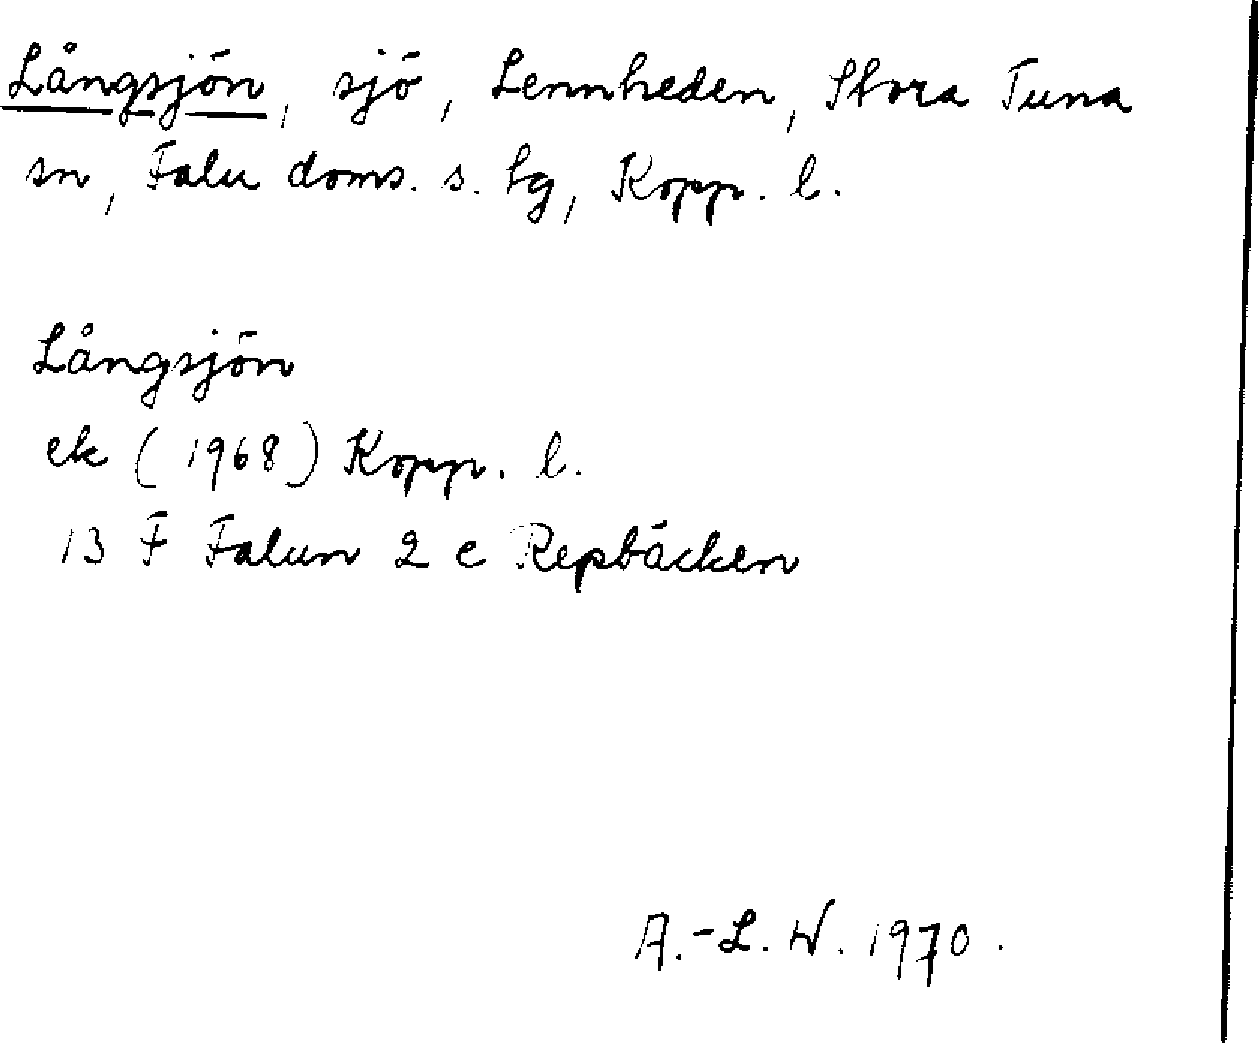 Långsjön, sjö, Lennheden, Stora Tuna
sn, Falu doms. s. tg, Kopp. l.
Långsjön
ek (1968) Kopp. l.
13 F Falun 2 c Repbäcken
A.-L. W. 1970.